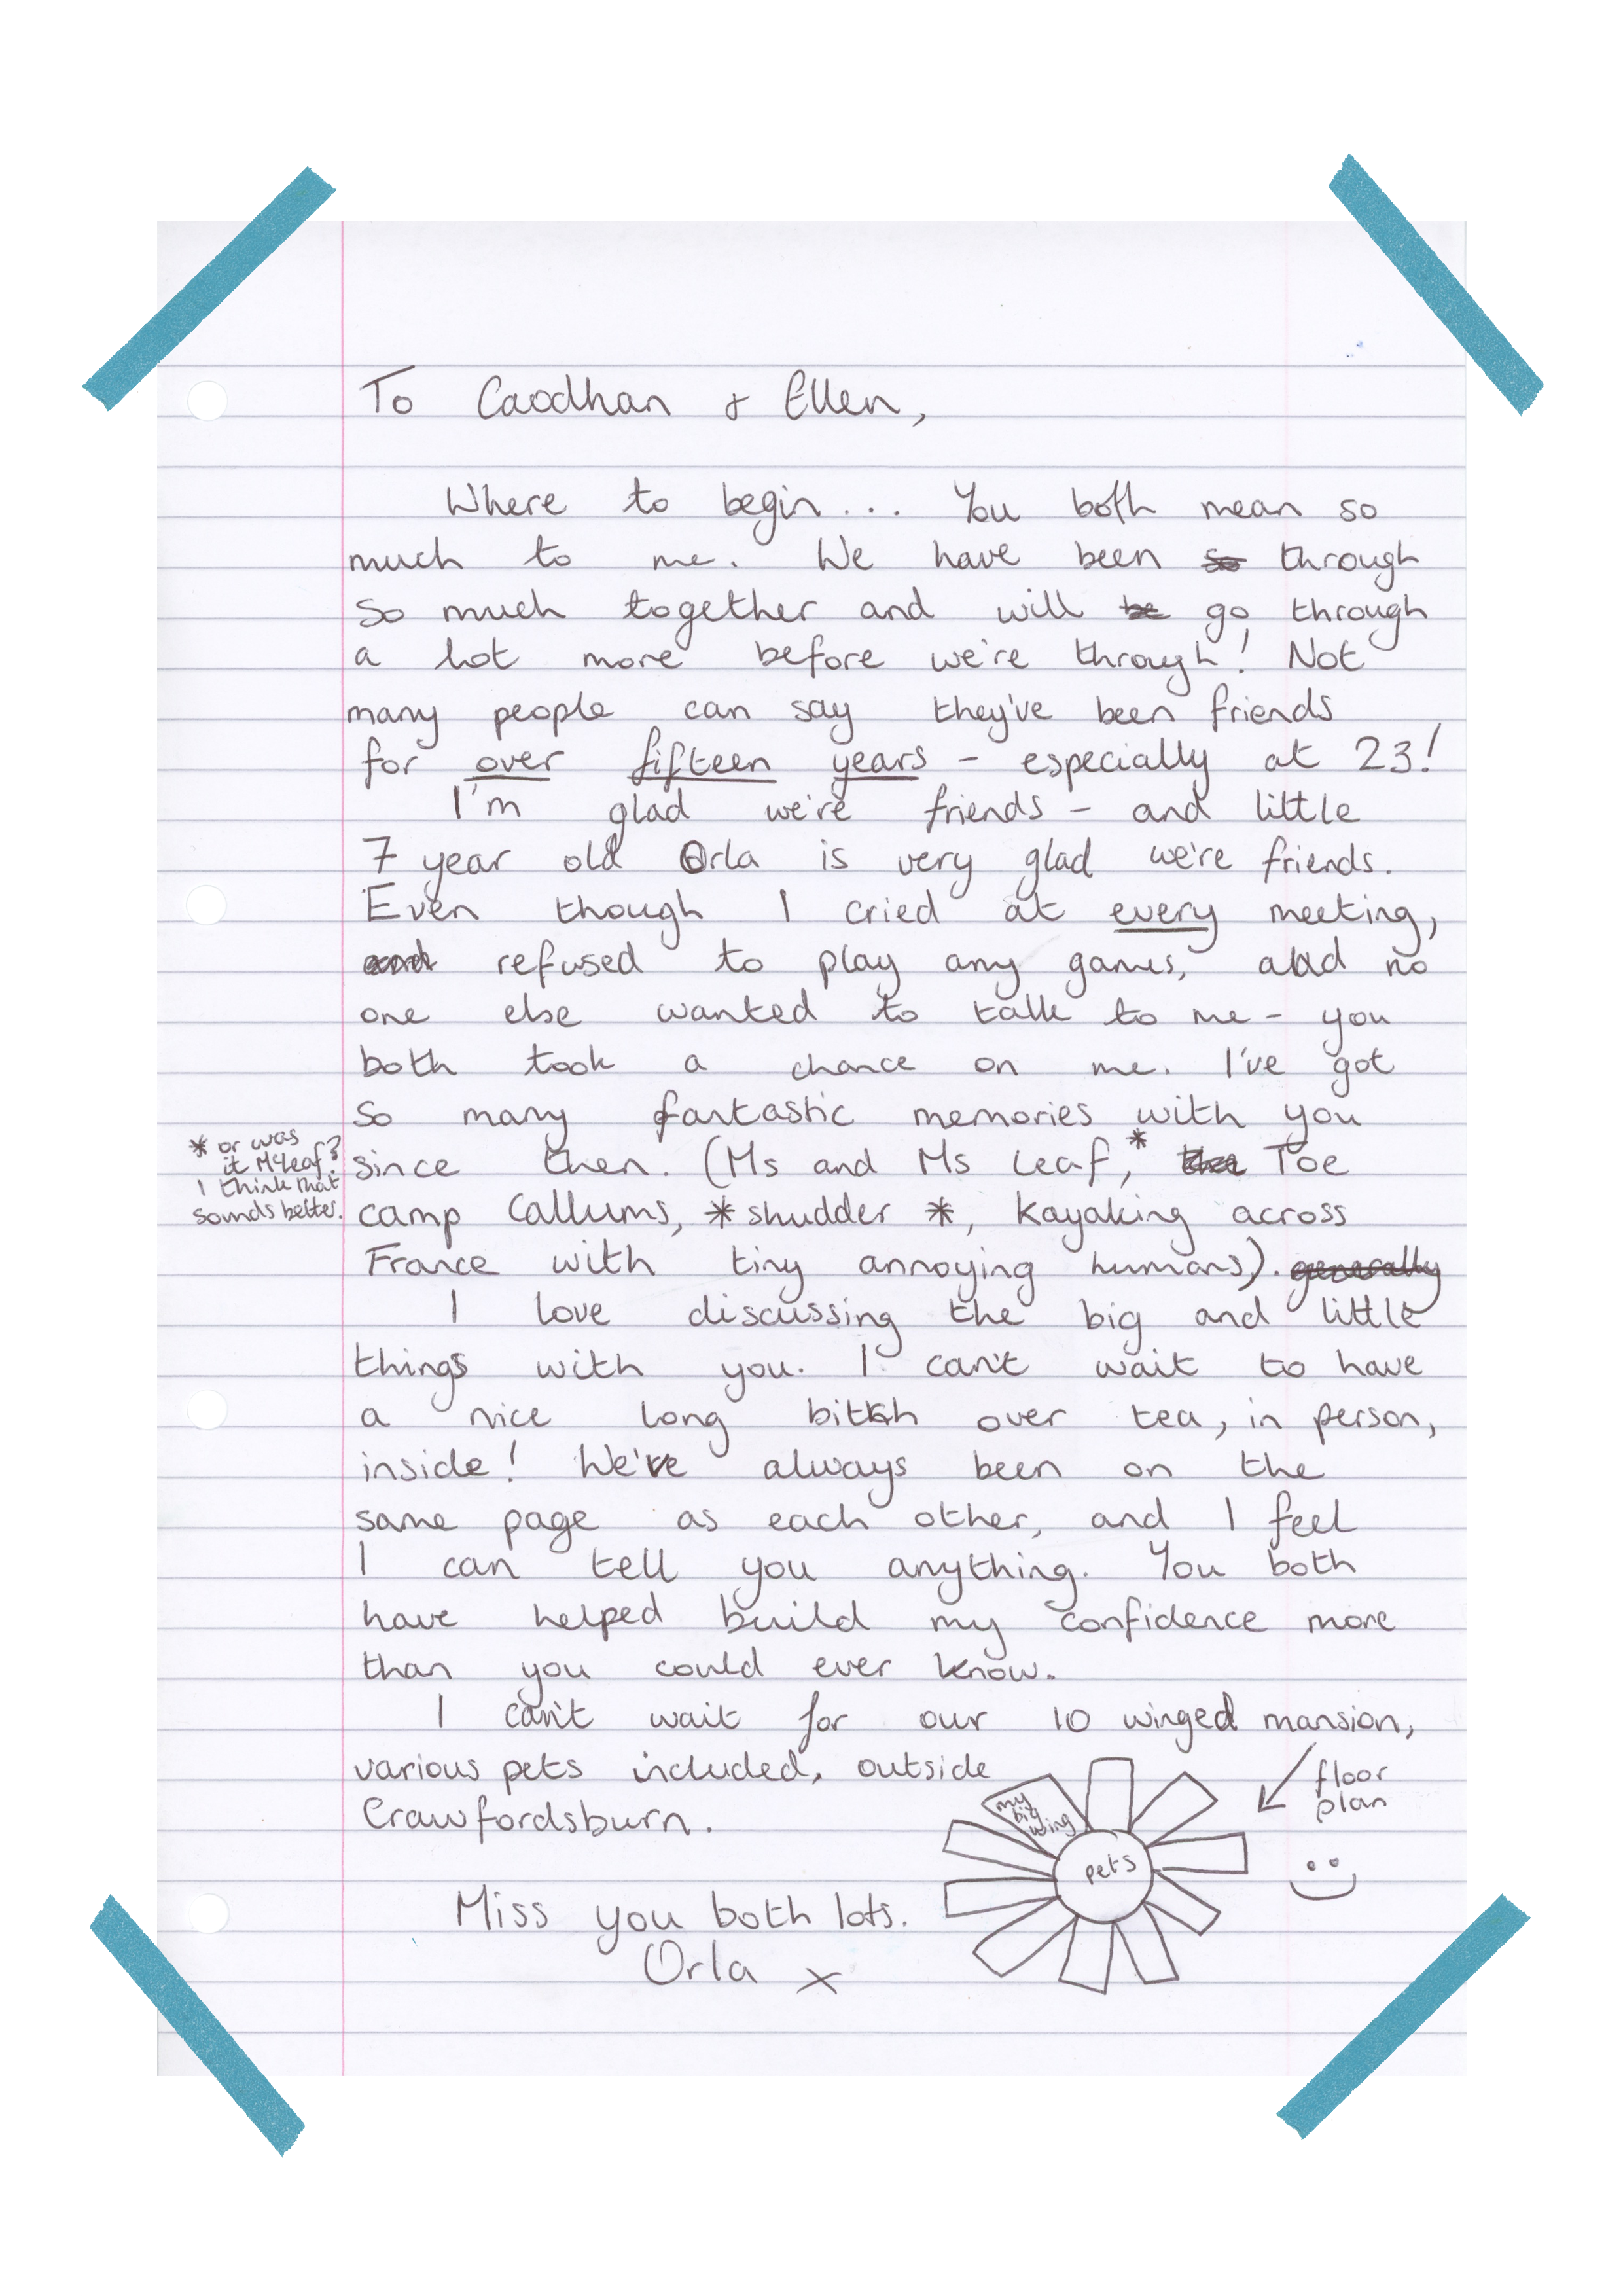 To Caodhan & Ellen,
Where to begin... You both mean so
much to me. We have been so through
so much together and will be go through
a lot more before we're through! Not
many people can say they've been friends
for over fifteen years - especially at 23!
I'm glad we're friends - and little
7 year old Orla is very glad we're friends.
Even though I cried at every meeting,
and refused to play any games, and no
one else wanted to talk to me - you
both took a chance on me. I've got
so many fantastic memories with you
since then. (Ms and Ms Leaf,* Toe
camp Callums, *shudder *, kayaking across
France with tiny annoying humans). generally
I love discussing the big and little
things with you. I can't wait to have
a nice long bitch over tea, in person,
inside! We've always been on the
same page as each other, and I feel
I can tell you anything. You both
have helped build my confidence more
than you could ever know.
I can't wait for our 10 winged mansion,
various pets included, outside
Crawfordsburn.
Miss you both lots.
Orla x
* or was
it McLeaf?
I think that
sounds better.
floor
plan
my
big
wing
pets